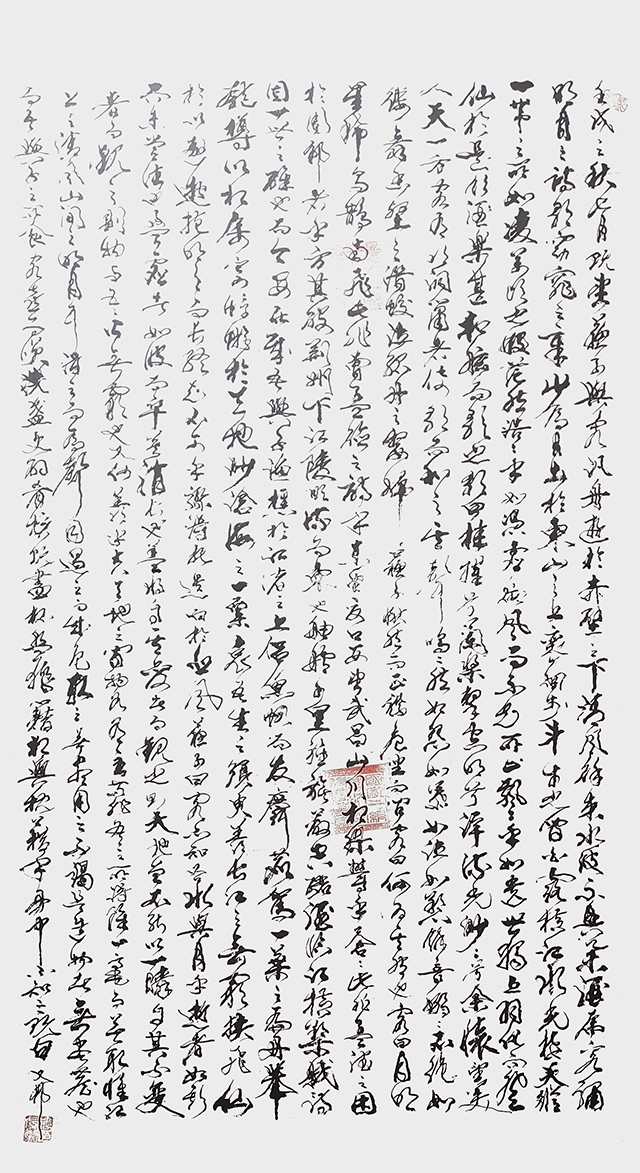 壬戌之秋七月既望蘇子與客汎舟遊於赤壁之下清風徐來水波不興舉酒屬客誦
明月之詩歌窈窕之章少焉月出於東山之上徘徊於斗牛之間白露橫江水光接天縱
一葦之所如凌萬頃之茫然浩浩乎如馮虛御風而不知所止飄飄乎如遺世獨立羽化而登
仙於是飲酒樂甚扣舷而歌之歌曰桂櫂兮蘭槳擊空明兮泝流光渺渺兮余懷望美
人天一方客有吹洞簫者倚歌而和之其聲嗚嗚然如怨如慕如泣如訴餘音嫋嫋不絕如
縷舞幽壑之潛蛟泣孤舟之嫠婦蘇子愀然正襟危坐而問客曰何為其然也客曰月明
星稀烏鵲南飛此非曹孟德之詩乎東望夏口西望武昌山川相繆鬱乎蒼蒼此非孟德之困
於周郎者乎方其破荊州下江陵順流而東也舳艫千里旌旗蔽空釃酒臨江橫槊賦詩
固一世之雄也而今安在哉吾與子漁樵於江渚之上侶魚蝦而友麋鹿駕一葉之扁舟舉
匏樽以相屬寄蜉蝣於天地渺滄海之一粟哀吾生之須臾羨長江之無窮挾飛仙
以遨遊抱明月而長終知不可乎驟得托遺響於悲風蘇子曰客亦知夫水與月乎逝者如斯
而未嘗往也盈虛者如彼而卒莫消長也蓋將自其變者而觀之則天地曾不能以一瞬自其不變
者而觀之則物與吾皆無窮也又何羨乎且夫天地之間物各有主苟非吾之所有雖一毫而莫取惟江
上之清風山間之明月耳得之而為聲目遇之而成色取之無禁用之不竭是造物者無盡藏也
而吾與子之所食客喜而笑洗盞更酌肴核既盡杯盤狼籍相與枕藉乎舟中不知之既白